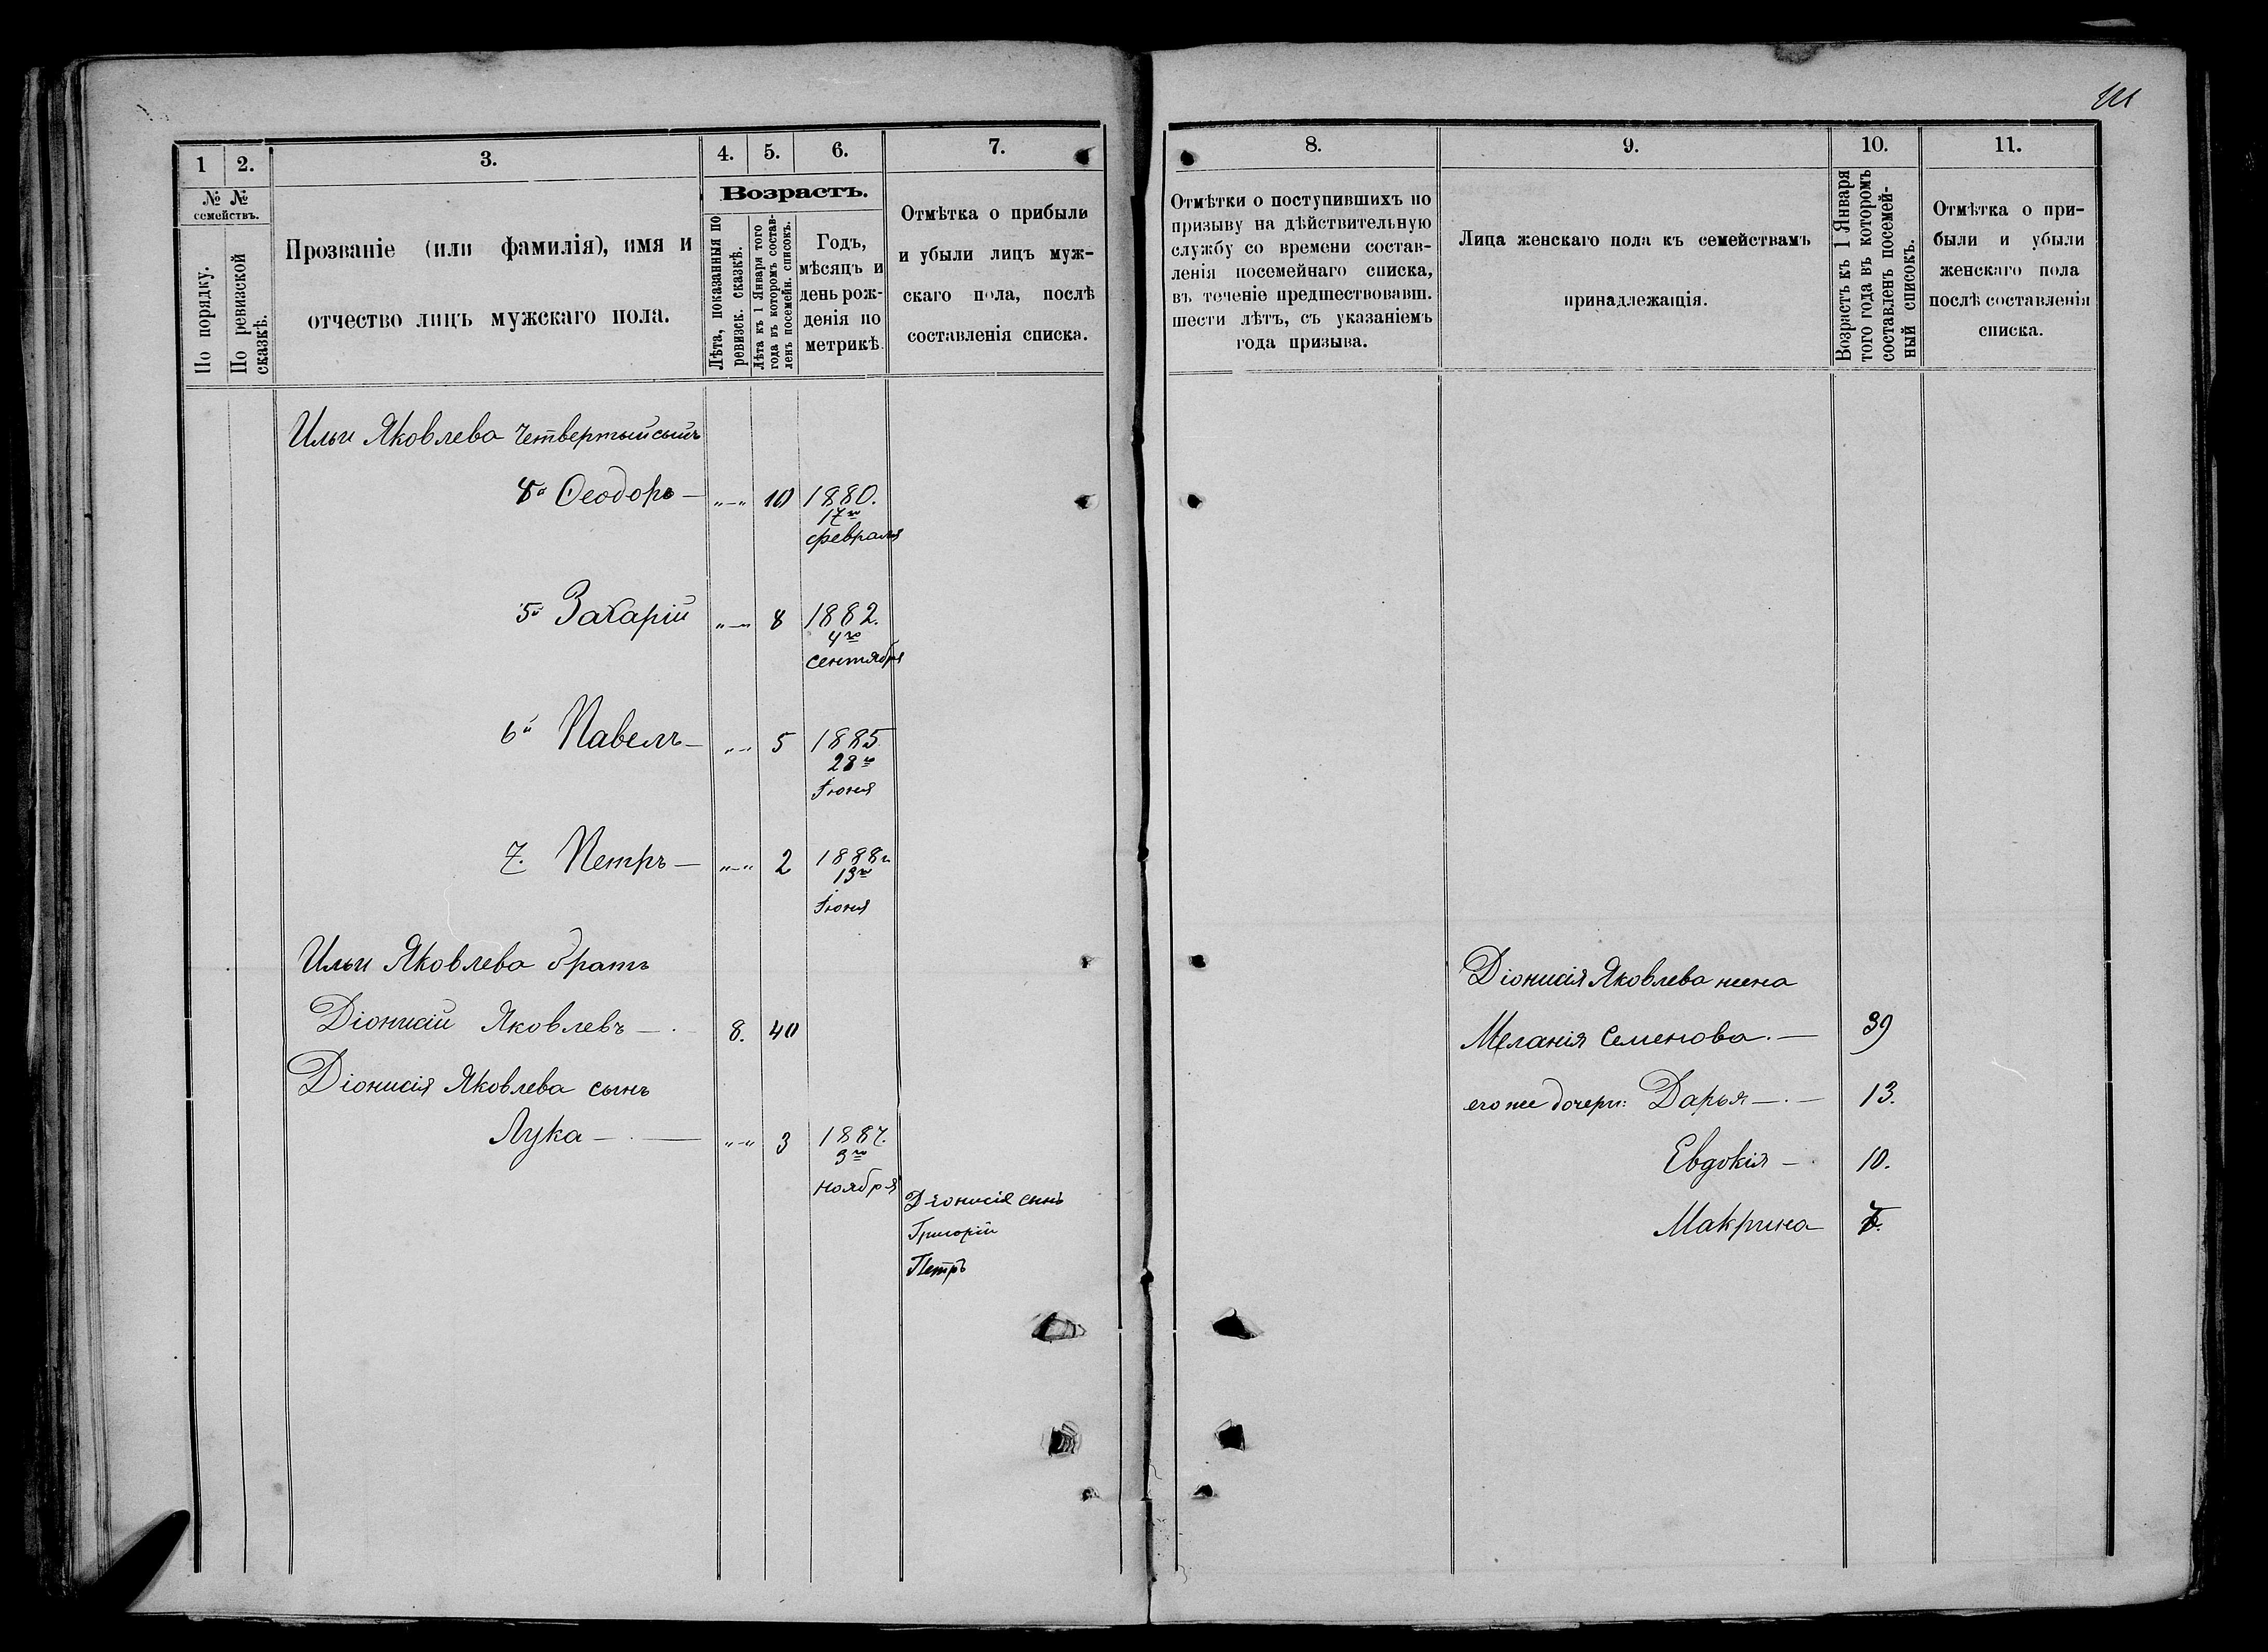 1
2.
3.
4.
5.
6.
7.
№ №
семействъ.
По порядку.
По ревизской
сказкѣ.
Прозваніе (или фамилія), имя и
отчество лицъ мужскаго пола.
Возрастъ.
Лѣта, показанныя по
ревизск. сказкѣ.
Лѣта къ 1 Января того
года въ которомъ состав-
ленъ посемейн. списокъ.
Годъ,
мѣсяцъ и
день рож-
денія по
метрикѣ.
Отмѣтка о прибыли
и убыли лицъ муж-
скаго пола, послѣ
составленія списка.
Ильи Яковлева четвертый сынъ
4й Ѳеодоръ — „—„ 10 1880.
17го
февраля
5й Захарій „—„ 8 1882.
4го
сентября
6й Павелъ — „—„ 5 1885
28го
Іюня
7. Петръ — „—„ 2 1888г.
13го
Іюня
Ильи Яковлева братъ
Діонисій Яковлевъ — . 8. 40
Діонисія Яковлева сынъ
Лука — . — „—„ 3 1887.
3го
ноября
Діонисія сынъ
Григорій
Петръ
8.
9.
10.
11.
Отмѣтки о поступившихъ по
призыву на дѣйствительную
службу со времени состав-
ленія посемейнаго списка,
въ теченіе предшествовавш.
шести лѣтъ, съ указаніемъ
года призыва.
Лица женскаго пола къ семействамъ
принадлежащія.
Возрастъ къ 1 Января
того года въ которомъ
составленъ посемей-
ный списокъ.
Отмѣтка о при-
были и убыли
женскаго пола
послѣ составленія
списка.
Діонисія Яковлева жена
Меланія Семенова. — 39
его же дочери: Дарья — . — 13.
Евдокія — . 10.
Макрина